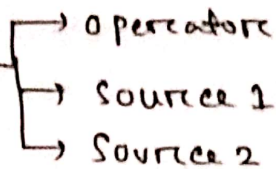 operator
Source 1
Source 2